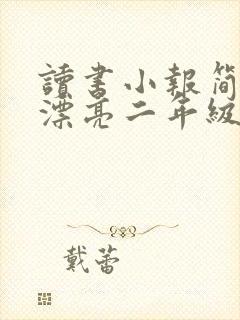 讀書小報簡
漂亮二年級
戴蕾